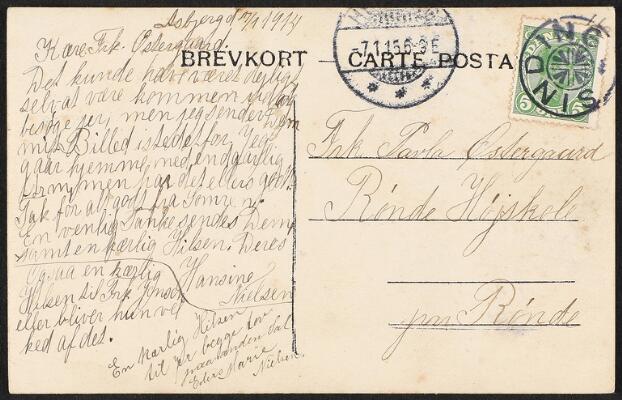 Asbjerg d 7/1 1914
Kære Frk. Østergaard.
Det kunde have været dejligt
selv at være kommen ud at
besøge jer, men jeg sender Dem
mit Billed istedet for. Jeg
gaar hjemme med en daarlig
Arm, men har det ellers godt.
Tak for alt godt fra Somren.
En venlig Tanke sendes Dem
samt en kærlig Hilsen. Deres
Hansine
Nielsen
Ogsaa en kærlig
Hilsen til Frk. Jensen
eller bliver hun ved
ked af det.
En kærlig Hilsen
til jer begge to
Marie
Nielsen.
BREVKORT — CARTE POSTA
7.1.15.6-9E
SINDING
5
Frk. Pavla Østergaard
Rønde Højskole
pr. Rønde